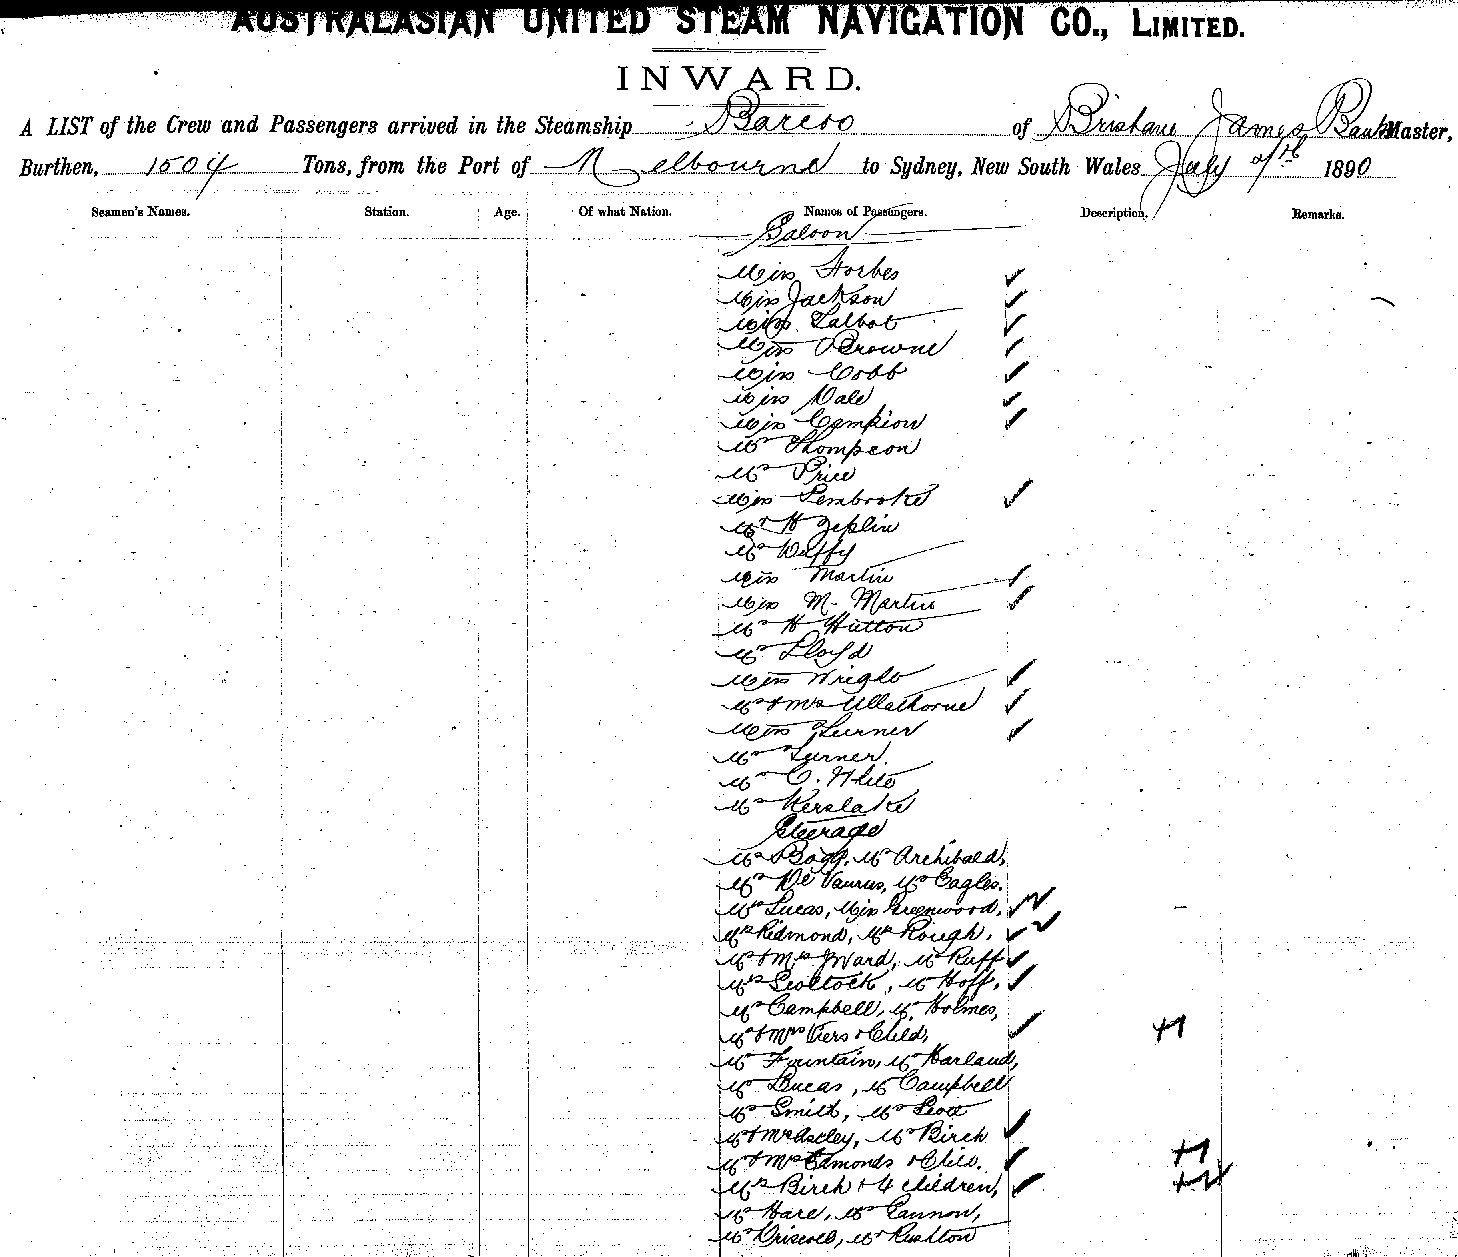 AUSTRALASIAN UNITED STEAM NAVIGATION CO., LIMITED.
INWARD.
A LIST of the Crew and Passengers arrived in the Steamship Barcoo of Brisbane James Banks Master,
Burthen, 1504 Tons, from the Port of Melbourne to Sydney, New South Wales July 1890
Seamen's Names. Station. Age. Of what Nation. Names of Passengers. Description. Remarks.
Saloon
Miss Forbes
Miss Jackson
Miss Talbot
Miss Browne
Miss Cobb
Miss Vale
Miss Campion
Mr Thompson
Mr Price
Miss Pembroke
Mr H Zeplin
Mr Duffy
Miss Martin
Miss M. Martin
Mr H Hutton
Mr Lloyd
Miss Wright
Mr & Mrs Ullathorne
Miss Turner
Mr Turner.
Mr C. White
Mr Kerslake
Steerage
Mr Bogg, Mr Archibald,
Mr De Vaurus, Mr Eagles.
Mrs Lucas, Miss Greenwood,
Mrs Redmond, Mrs Rough,
Mr & Mrs Ward, Mr Ruff
Mrs Mr Hoff,
Mr Campbell, Mr Holmes,
Mr & Mrs Viers & Child,
Mr Fountain, Mr Harland,
Mr Lucas, Mr Campbell
Mr Smith, Mr Scott
Mr & Mrs Astley, Mr Birch
Mr & Mrs Edmonds & Child.
Mrs Birch & 4 children,
Mr Hare, Mr Cannon,
Mr Driscoll, Mr Rushton